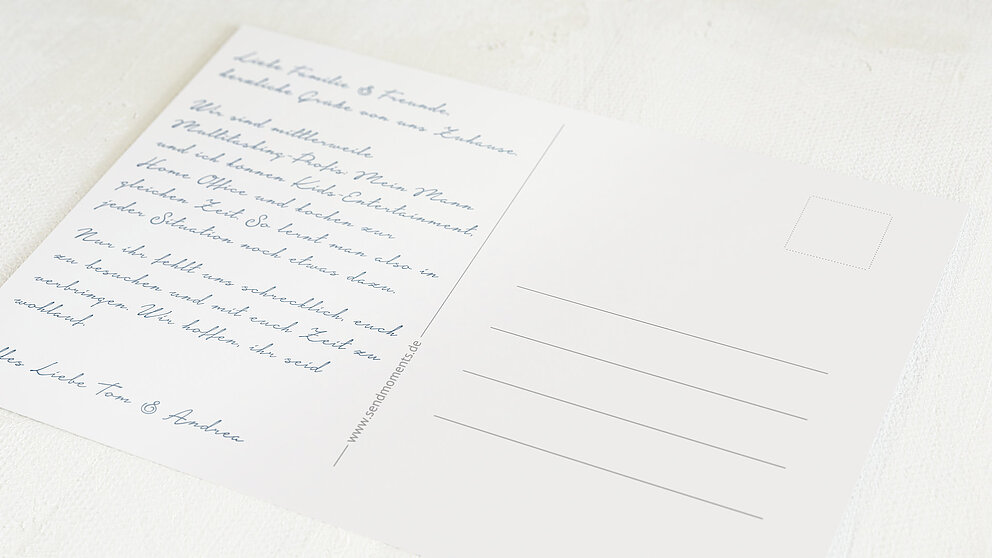 Liebe Familie & Freunde,
herzliche Grüße von uns Zuhause.
Wir sind mittlerweile
Multitasking-Profis: Mein Mann
und ich können Kids-Entertainment,
Home Office und kochen zur
gleichen Zeit. So lernt man also in
jeder Situation noch etwas dazu.
Nur ihr fehlt uns schrecklich, euch
zu besuchen und mit euch Zeit zu
verbringen. Wir hoffen, ihr seid
wohlauf.
lles Liebe Tom & Andrea
www.sendmoments.de